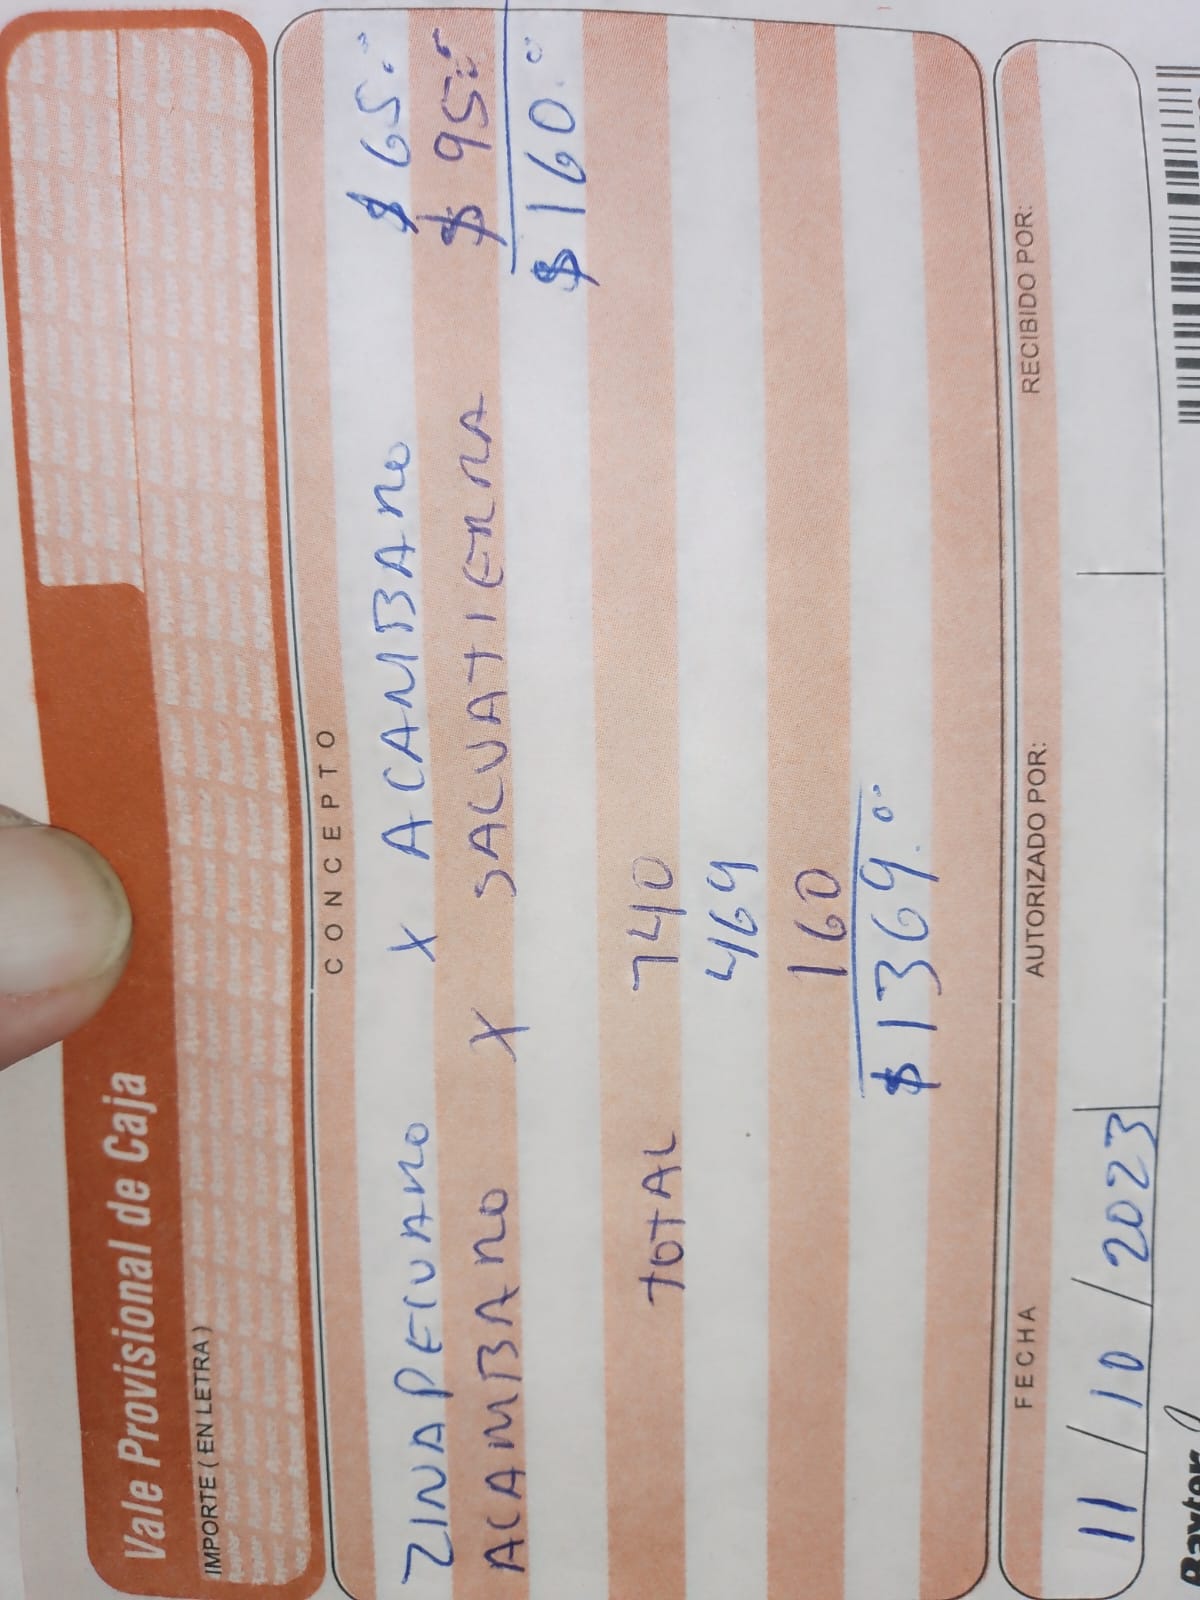 Vale Provisional de Caja
IMPORTE ( EN LETRA )
CONCEPTO
ZINAPECUARO X ACAMBARO $ 65.00
ACAMBARO X SALVATIERRA $ 95.00
$ 160.00
TOTAL 740
469
160
$ 1369.00
FECHA AUTORIZADO POR: RECIBIDO POR:
11 / 10 / 2023
Baxter